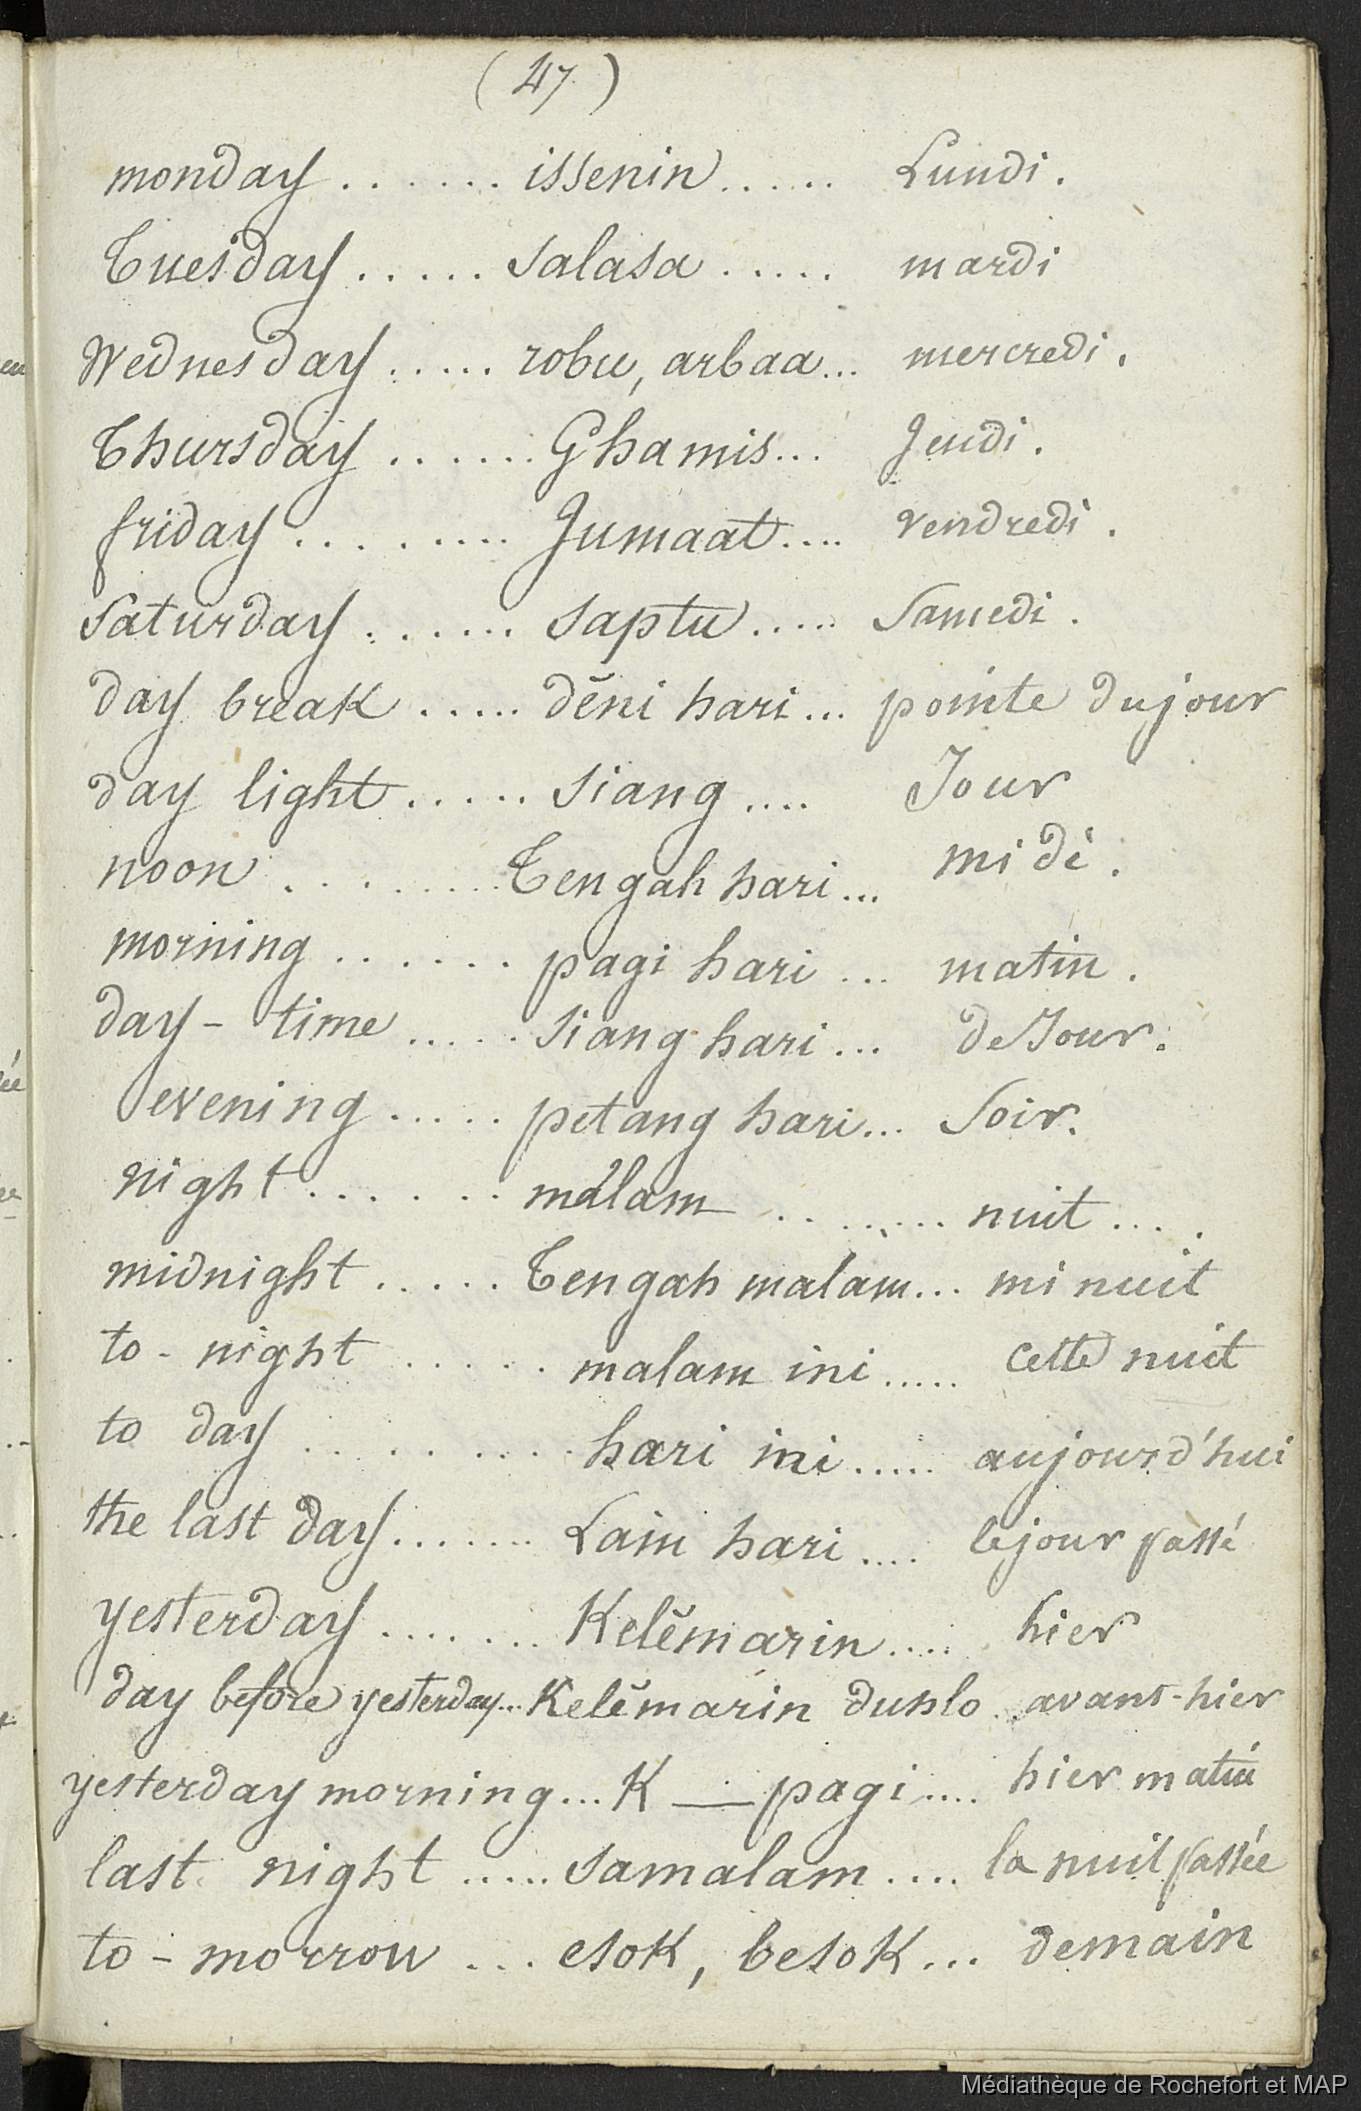 ( 47 )
monday ....... issenin ...... Lundi .
Tuesday ..... salasa ..... mardi
Wednesday ..... robu, arbaa... mercredi .
Thursday ...... Ghamis... Jeudi .
friday ........ Jumaat .... vendredi .
Saturday ...... saptu ..... Samedi .
day break ..... dĕni hari ... pointe du jour
day light ...... siang .... Jour
noon ........ Tengah hari ... mi dé .
morning ....... pagi hari ... matin .
day - time ..... siang hari ... de Jour .
evening ..... petang hari ... Soir .
night ....... málam ....... nuit ....
midnight ..... Tengah malam ... mi nuit
to - night ..... malam ini ..... cette nuit
to day .......... hari ini ..... aujourd'hui
the last day ....... Lain hari .... le jour passé
yesterday ....... Kelĕmarin .... hier
day before yesterday ... Kelĕmarin duhlo . avant-hier
yesterday morning ... K — pagi .... hier matin
last night ..... samalam .... la nuit passée
to - morrow ... esok, besok ... demain
Médiathèque de Rochefort et MAP